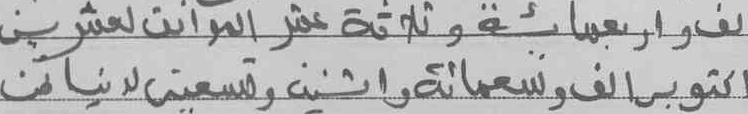 الف واربعمائة وثلاثة عشر الموافق لعشرين
اكتوبر الف وتسعمائة واثنين وتسعين لدينا نحن